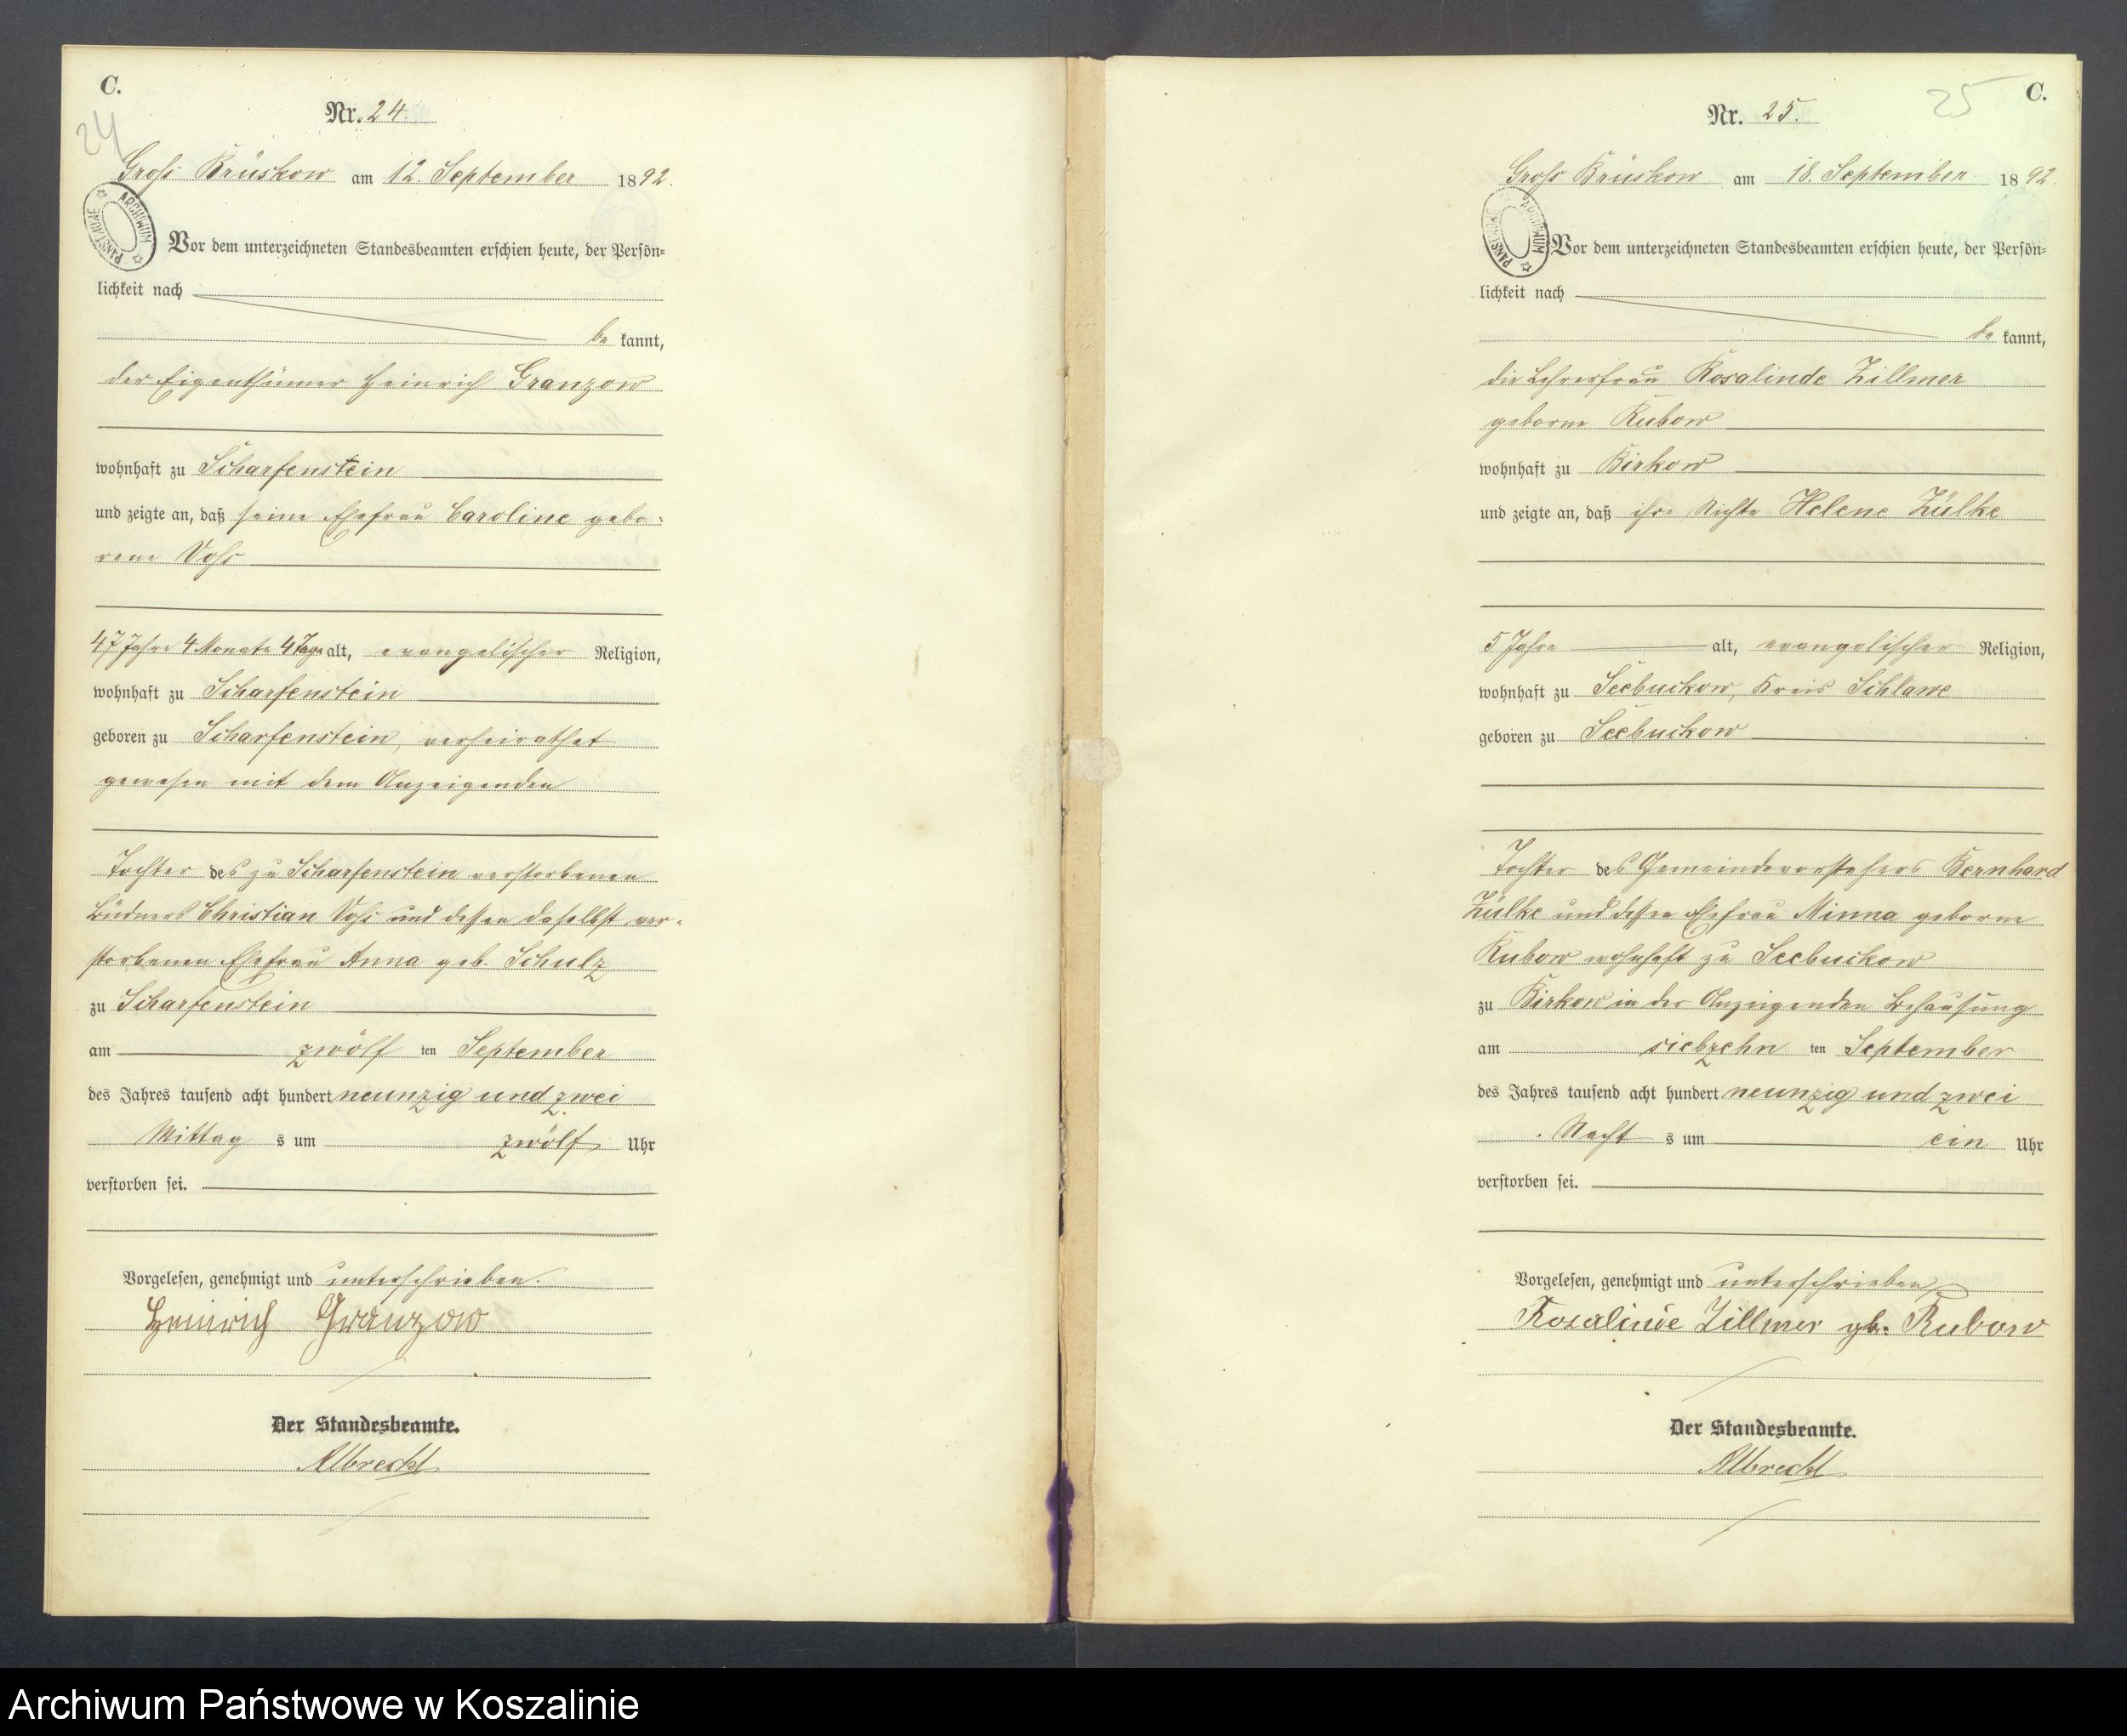 C.
24
Nr. 24.
Groß Brüskow am 12. September 1892.
ARCHIWUM PAŃSTWOWE
Vor dem unterzeichneten Standesbeamten erschien heute, der Persön-
lichkeit nach
be kannt,
der Eigenthümer Heinrich Granzow
wohnhaft zu Scharfenstein
und zeigte an, daß seine Ehefrau Caroline gebo-
rene Voß
47 Jahre 4 Monate 4 Tage alt, evangelischer Religion,
wohnhaft zu Scharfenstein
geboren zu Scharfenstein, verheirathet
gewesen mit dem Anzeigenden
Tochter des zu Scharfenstein verstorbenen
Büdners Christian Voß und dessen daselbst ver-
storbenen Ehefrau Anna geb. Schulz
zu Scharfenstein
am zwölf ten September
des Jahres tausend acht hundert neunzig und zwei
Mittag s um zwölf Uhr
verstorben sei.
Vorgelesen, genehmigt und unterschrieben.
Heinrich Granzow
Der Standesbeamte.
Albrecht
C.
25
Nr. 25.
Groß Brüskow am 18. September 1892.
ARCHIWUM PAŃSTWOWE
Vor dem unterzeichneten Standesbeamten erschien heute, der Persön-
lichkeit nach
be kannt,
die Lehrerfrau Rosalinde Zillmer
geborne Rubow
wohnhaft zu Birkow
und zeigte an, daß ihre Nichte Helene Zülke
5 Jahre alt, evangelischer Religion,
wohnhaft zu Seebuckow, Kreis Schlawe
geboren zu Seebuckow
Tochter des Gemeindevorstehers Bernhard
Zülke und dessen Ehefrau Minna geborne
Rubow wohnhaft zu Seebuckow
zu Birkow in der Anzeigenden Behausung
am siebzehn ten September
des Jahres tausend acht hundert neunzig und zwei
Nacht s um ein Uhr
verstorben sei.
Vorgelesen, genehmigt und unterschrieben
Rosalinde Zillmer gb. Rubow
Der Standesbeamte.
Albrecht
Archiwum Państwowe w Koszalinie